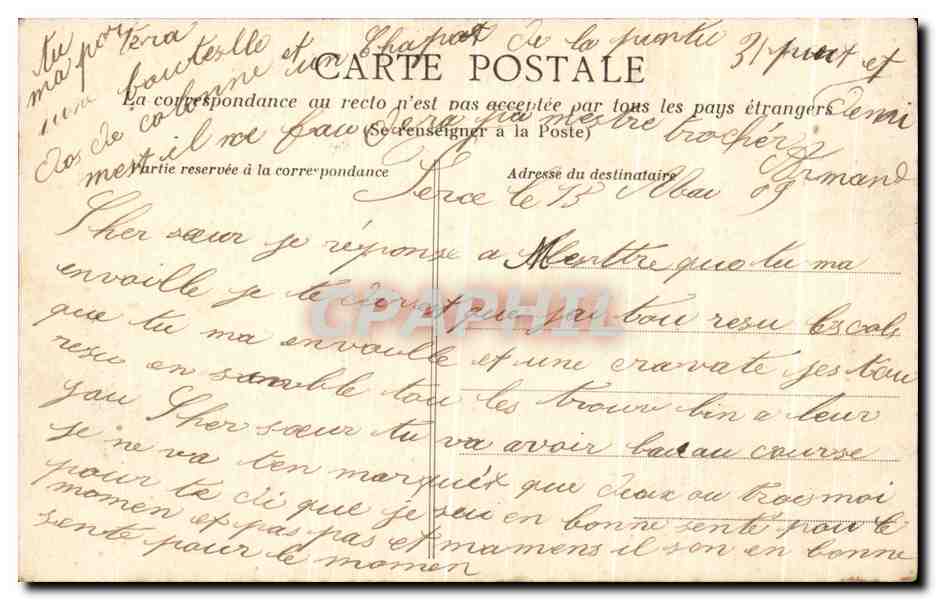 tu
ma portera
une bouteille et un Chapot de la pointu 31 puit et
dos de colonne
demi
ment il me faudera pu mestre brochér
Armand
CARTE POSTALE
La correspondance au recto n'est pas acceptée par tous les pays étrangers
(Se renseigner à la Poste)
Partie reservée à la correspondance
Adresse du destinataire
le 13 Mai 09
Cher sœur je réponse a quo tu ma
envoille je te que jai tou resu les cols
que tu ma envoille et une cravate jes tou
resu en semble tou les trouv bin a leur
gou Cher sœur tu va avoir bocau course
je ne va ten marquér que deax ou troes moi
pour te di que je sui en bonne senté pou le
momen et pas pas et mamens il son en bonne
sente pour le momen
CPAPHIL